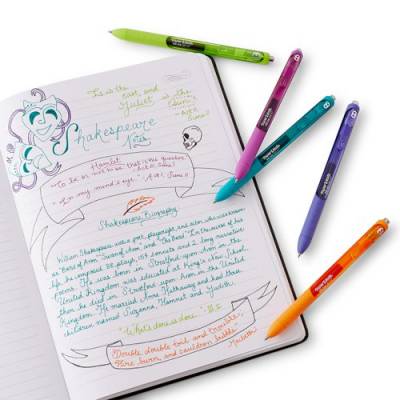 "Tis the east, and
Juliet is the
Sun."
Act 2
Scene 2
Shakespeare
Notes
Hamlet
"To be or not to be that is the question"
Act 3 Scene 1
"In my mind's eye." Act 1, Scene 2
Shakespeare Biography
William Shakespeare was a poet, playwright, and actor who was known
as "Bard of Avon," "Swan of Avon," and "The Bard". In the course of his
life he composed 38 plays, 154 sonnets and 2 long narrative
poems. He was born in Stratford upon Avon in the
United Kingdom was educated at King's New School
then he died in Stratford upon Avon in the United
Kingdom. He married Anne Hathaway and had three
children named Suzanna, Hamnet and Judith.
"What's done is done."
Double, double toil and trouble,
Fire burn and cauldron bubble"
Macbeth
Paper Mate
Paper Mate
Paper Mate
Paper Mate
Paper Mate